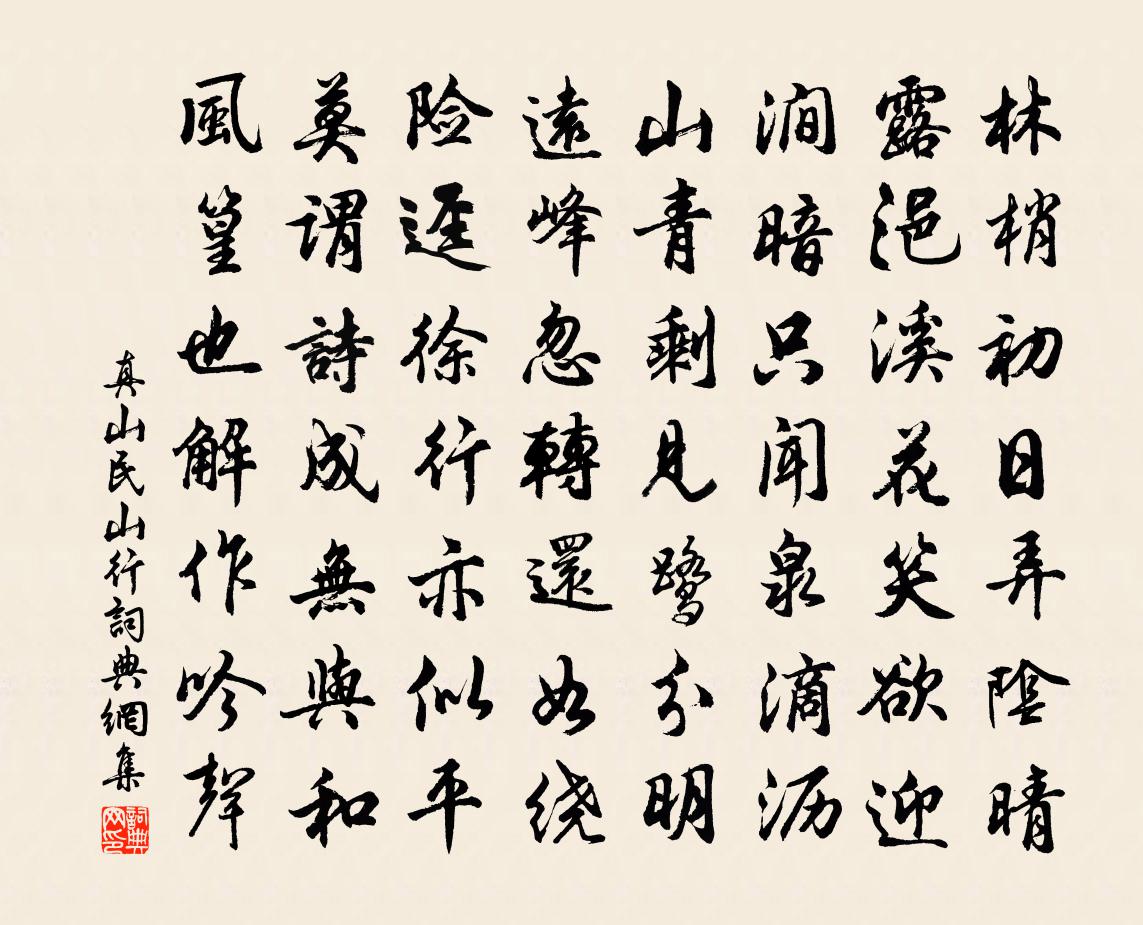 林梢初日弄陰晴
露浥溪花笑欲迎
澗暗只聞泉滴沥
山青剩見鷺分明
遠峰忽轉還如绕
险逕徐行亦似平
莫谓詩成無與和
風篁也解作吟聲
真山民山行詞典網集
詞典网印